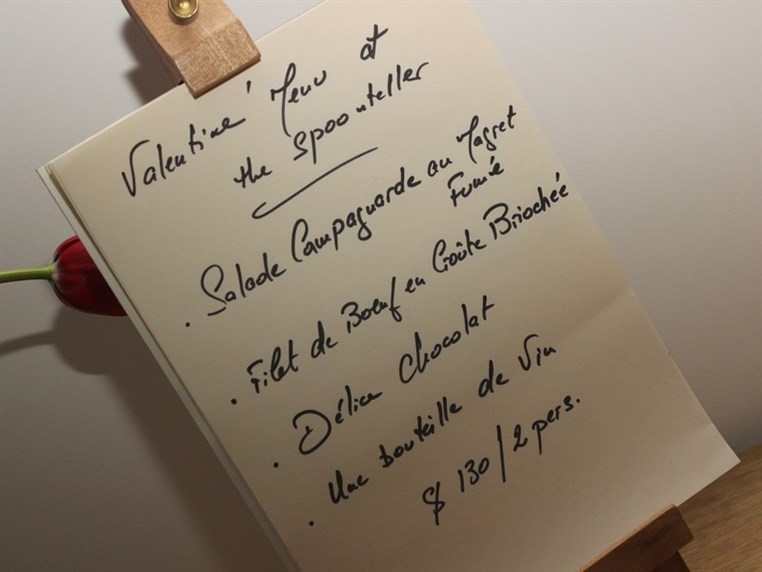 Valentine' Menu at
the Spoonteller
• Salade Campagnarde au Magret
Fumé
• Filet de Boeuf en Croûte Briochée
• Délice Chocolat
• Une bouteille de Vin
$ 130 / 2 pers.